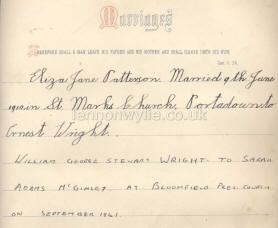 Marriages
THEREFORE SHALL A MAN LEAVE HIS FATHER AND HIS MOTHER AND SHALL CLEAVE UNTO HIS WIFE
Gen. 2. 24.
Eliza Jane Patterson. Married 9th June
1910 in St. Marks Church, Portadown to
Ernest Wright.
lennonwylie.co.uk
WILLIAM GEORGE STEWART WRIGHT. TO SARAH
ADAMS McGINLEY. AT BLOOMFIELD PRES. CHURCH
ON SEPTEMBER 1941.